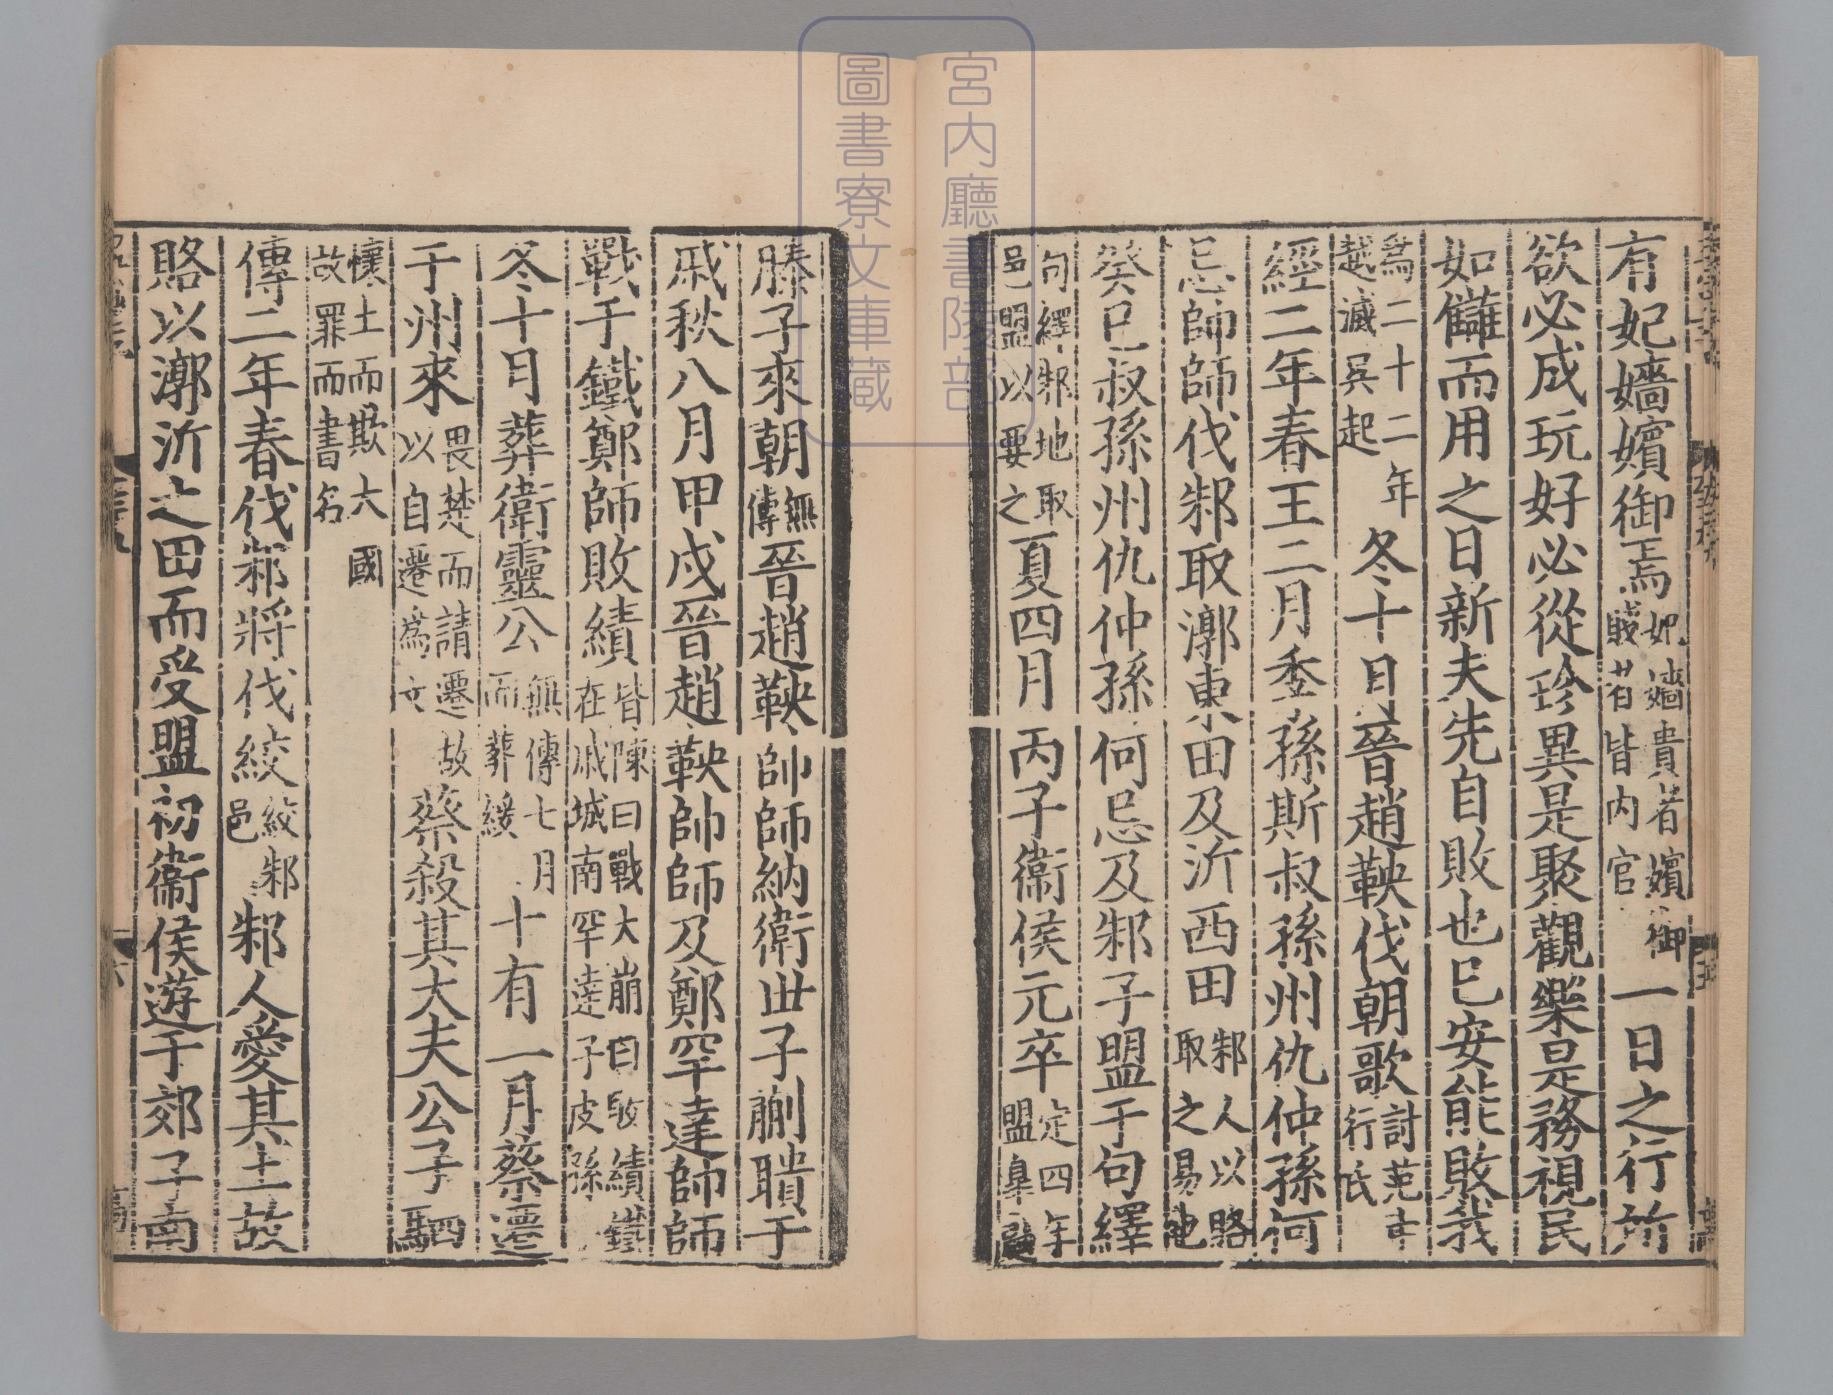 有妃嬙嬪御焉妃嬙貴者嬪御賤者皆内官一日之行所
欲必成玩好必從珍異是聚觀樂是務視民
如讎而用之日新夫先自敗也已安能敗我
爲二十二年越滅吳起冬十月晉趙鞅伐朝歌討范吉行氏
經二年春王二月季孫斯叔孫州仇仲孫何
忌帥師伐邾取漷東田及沂西田邾人以賂取之易也
癸巳叔孫州仇仲孫何忌及邾子盟于句繹
句繹邾地取邑盟以要之夏四月丙子衛侯元卒定四年盟皐鼬
滕子來朝無傳晉趙鞅帥師納衛世子蒯聵于
戚秋八月甲戌晉趙鞅帥師及鄭罕達帥師
戰于鐵鄭師敗績皆陳曰戰大崩曰敗績鐵在戚城南罕達子皮孫
冬十月葬衛靈公無傳七月而葬緩十有一月蔡遷
于州來畏楚而請遷故以自遷爲文蔡殺其大夫公子駟
懷土而欺大國故罪而書名
傳二年春伐邾將伐絞絞邾邑邾人愛其土故
賂以漷沂之田而受盟初衛侯遊于郊子南
宮内廳書陵部
圖書寮文庫藏